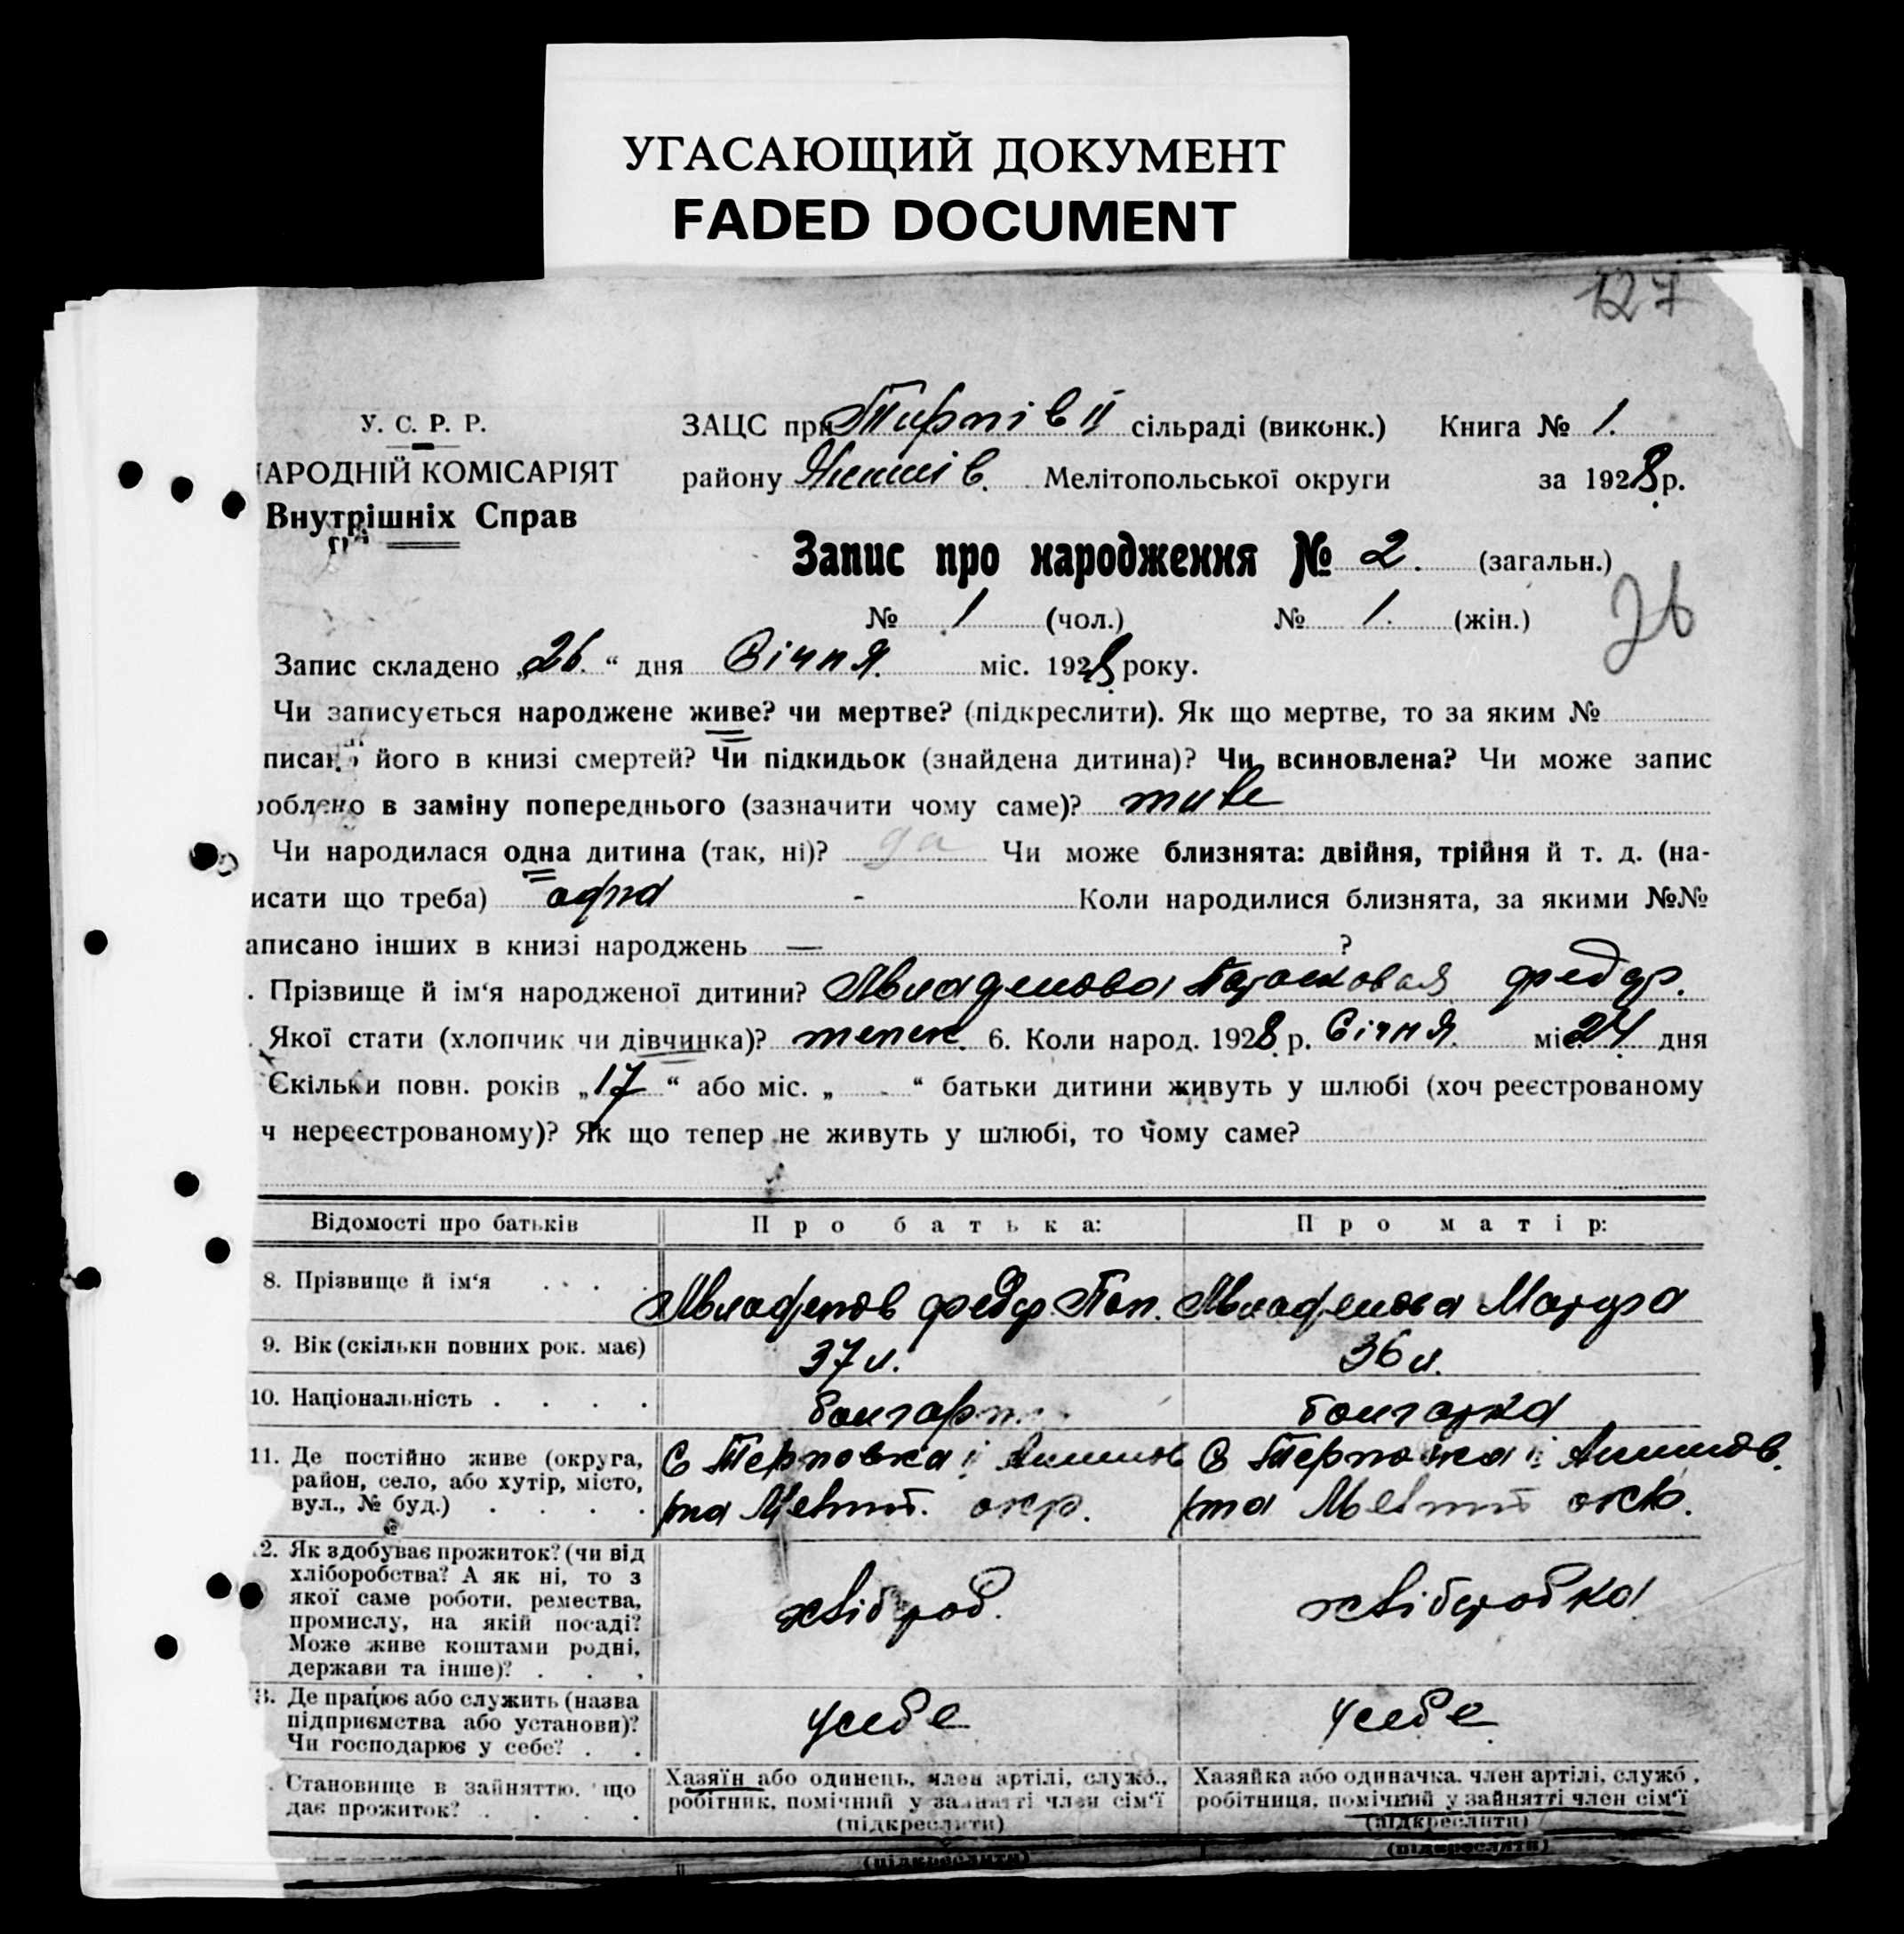 УГАСАЮЩИЙ ДОКУМЕНТ
FADED DOCUMENT
127
У. С. Р. Р.
АРОДНІЙ КОМІСАРІЯТ
Внутрішніх Справ
ЗАЦС при Тирпів ІІ сільраді (виконк.) Книга № 1.
району Мелітопольської округи за 1928 р.
Запис про народження № 2. (загальн.)
№ 1 (чол.) № 1. (жін.)
26
Запис складено „26“ дня Січня. міс. 1928 року.
Чи записується народжене живе? чи мертве? (підкреслити). Як що мертве, то за яким №
писан його в книзі смертей? Чи підкидьок (знайдена дитина)? Чи всиновлена? Чи може запис
роблено в заміну попереднього (зазначити чому саме)? живе
Чи народилася одна дитина (так, ні)? да Чи може близнята: двійня, трійня й т. д. (на-
исати що треба) одна - Коли народилися близнята, за якими №№
аписано інших в книзі народжень — ?
. Прізвище й ім‘я народженої дитини? Младенова Федор.
. Якої стати (хлопчик чи дівчинка)? женск. 6. Коли народ. 1928 р. Січня. міс. 24 дня
Скільки повн. років „17“ або міс. „ - “ батьки дитини живуть у шлюбі (хоч реєстрованому
ч нереєстрованому)? Як що тепер не живуть у шлюбі, то чому саме?
Відомості про батьків Про батька: Про матір:
8. Прізвище й ім‘я . . . . Младенов Федор Пан. Младенова Мотря
9. Вік (скільки повних рок. має) 37 л. 36 л.
10. Національність . . . . болгарин болгарка
11. Де постійно живе (округа, район, село, або хутір, місто, вул., № буд.) . . . .
С Терновка Акимов
р/на Меліт. окр.
С Терновка Акимов.
р/на Меліт окр.
2. Як здобуває прожиток? (чи від хліборобства? А як ні, то з якої саме роботи, ремества, промислу, на якій посаді? Може живе коштами родні, держави та інше)? . . .
хлібороб.
хліборобка
3. Де працює або служить (назва підприємства або установи)? Чи господарює у себе? . .
у себе
у себе
. Становище в зайняттю, що дає прожиток? . . . .
Хазяїн або одинець, член артілі, служб., робітник, помічний у зайнятті член сім‘ї
(підкреслити)
Хазяйка або одиначка, член артілі, служб., робітниця, помічний у зайнятті член сім‘ї
(підкреслити)
(підкреслити) (підкреслити)